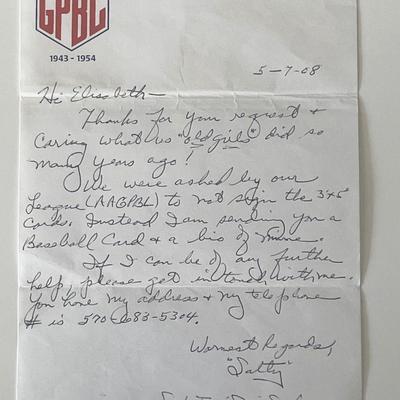 GPBL
1943 - 1954
5-7-08
Hi Elisabeth-
Thanks for your request &
caring what us "old girls" did so
many years ago!
We were asked by our
League (AAGPBL) to not sign the 3x5
cards. Instead I am sending you a
Baseball Card & a bio of mine.
If I can be of any further
help, please get in touch with me.
You have my address & my telephone
# is 570-683-5304.
Warmest Regards,
"Salty"